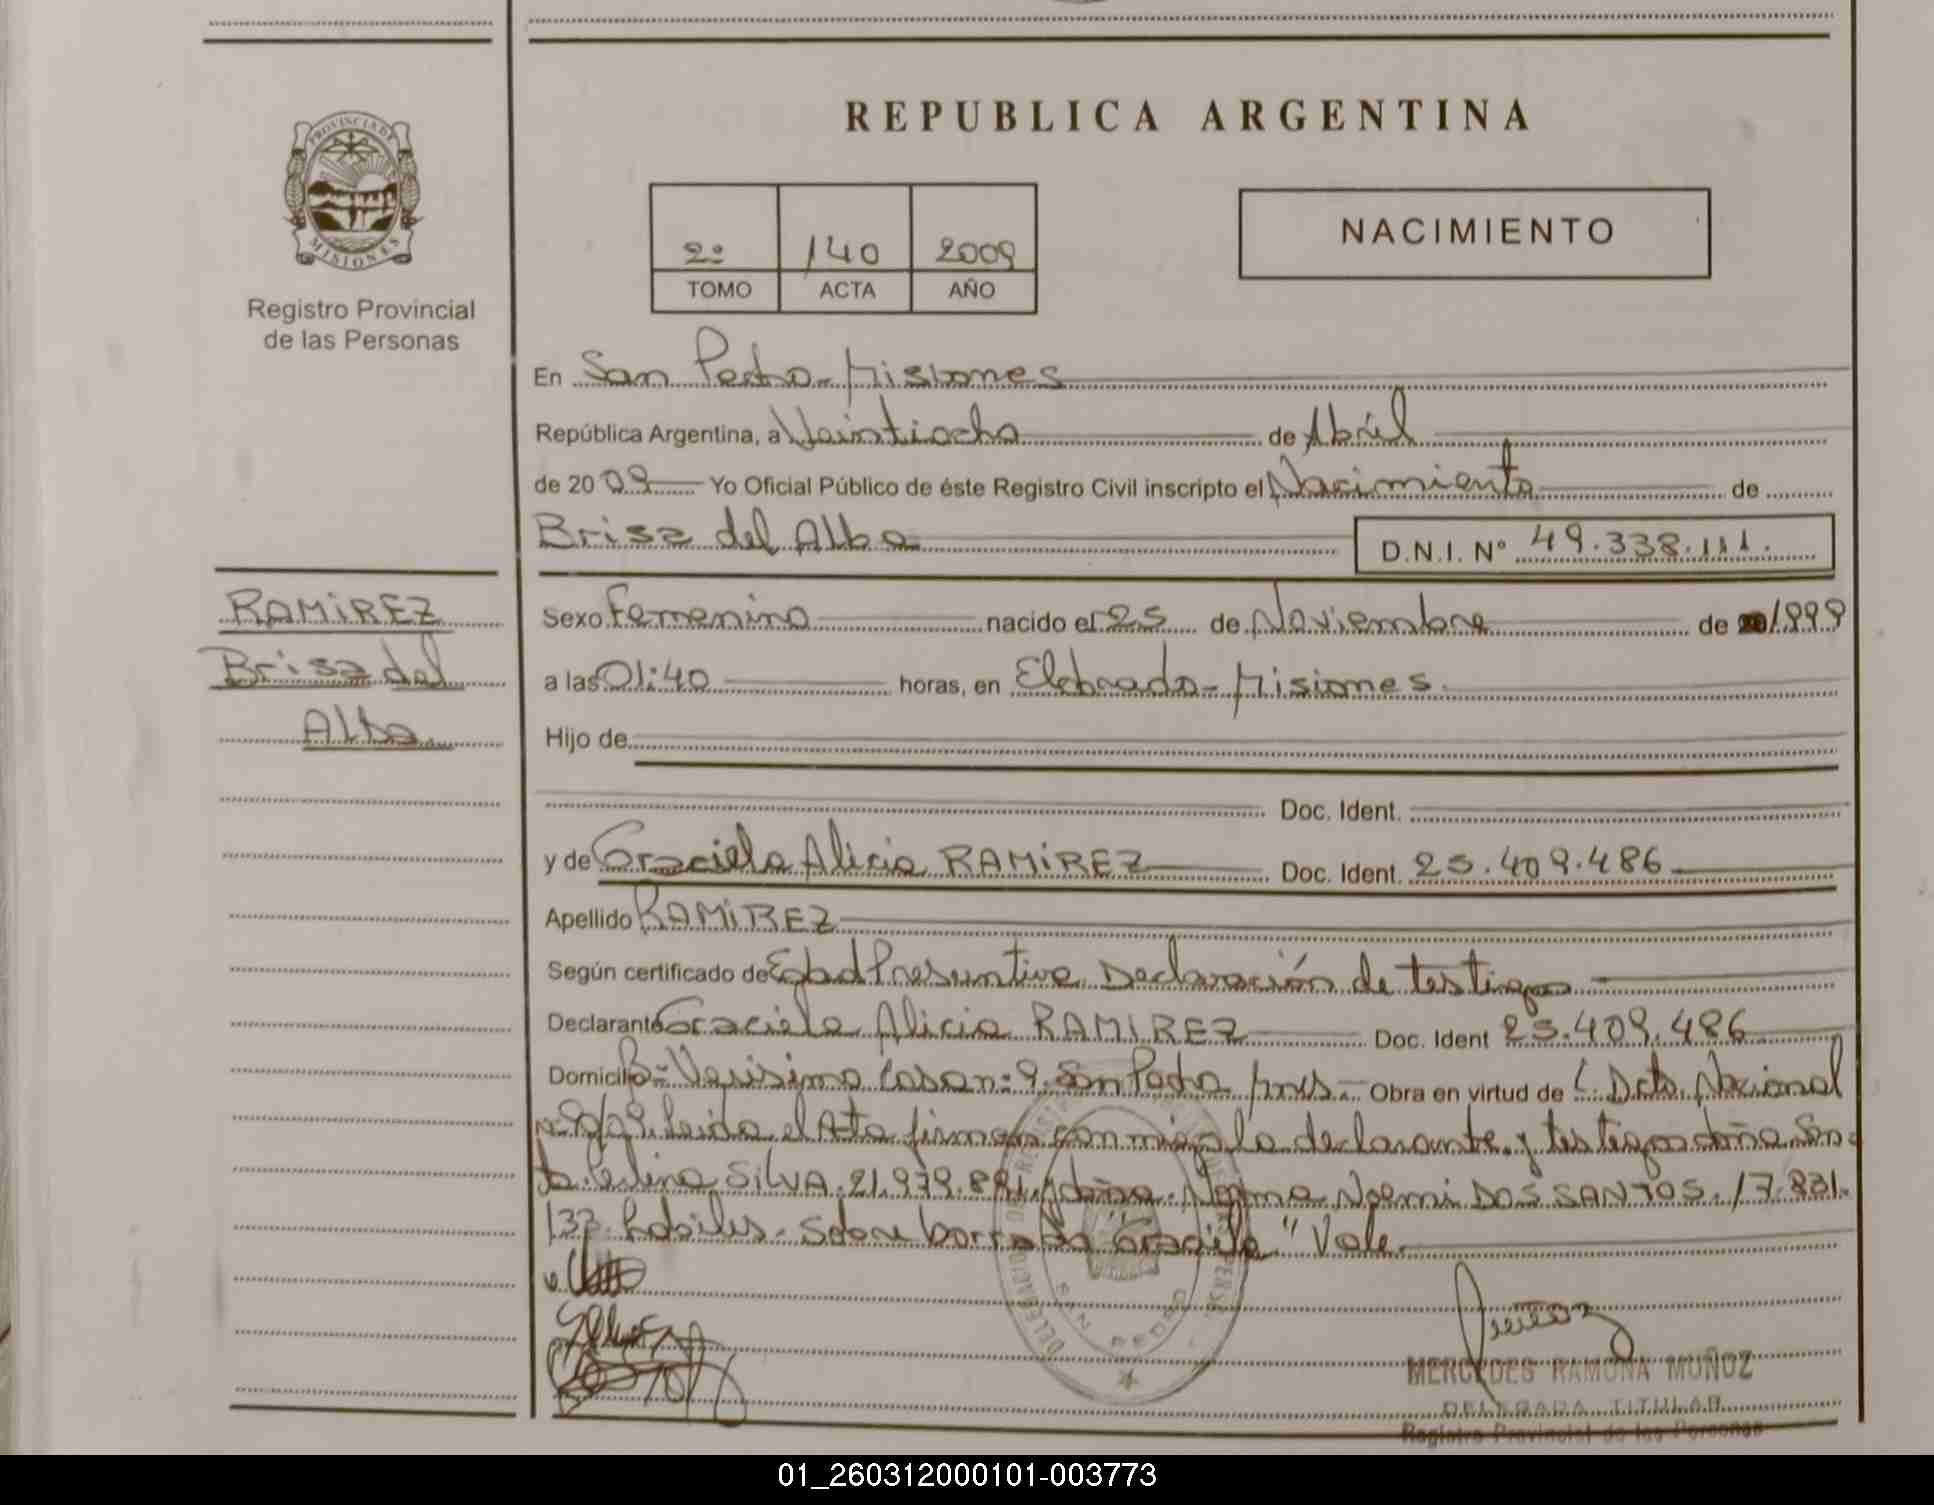 REPUBLICA ARGENTINA
PROVINCIA DE MISIONES
Registro Provincial
de las Personas
2º 140 2009
TOMO ACTA AÑO
NACIMIENTO
En San Pedro - Misiones
República Argentina, a Veintiocho de Abril
de 20 09 Yo Oficial Público de éste Registro Civil inscripto el Nacimiento de
Brisa del Alba D.N.I. Nº 49.338.111.
RAMIREZ
Brisa del
Alba
Sexo Femenino nacido el 25 de Noviembre de 1999
a las 01:40 horas, en Eldorado - Misiones.
Hijo de
Doc. Ident.
y de Graciela Alicia RAMIREZ Doc. Ident. 25.409.486
Apellido RAMIREZ
Según certificado de Edad Presuntiva Declaración de testigos
Declarante Graciela Alicia RAMIREZ Doc. Ident 25.409.486
Domicilio Bº Verisimo Casa nº 9. San Pedro Mnes. Obra en virtud de Dcto. Nacional
nº 90/09. Leida el Acta firman conmigo la declarante y testigos doña
SILVA. 21.979.881. y doña Norma Noemi DOS SANTOS. 17.831.
133. Sobre borrado "Graciela" Vale.
DELEGACIO
SAN PEDRO
MERCEDES RAMONA MUÑOZ
DELEGADA TITULAR
Registro Provincial de las Personas
01_260312000101-003773